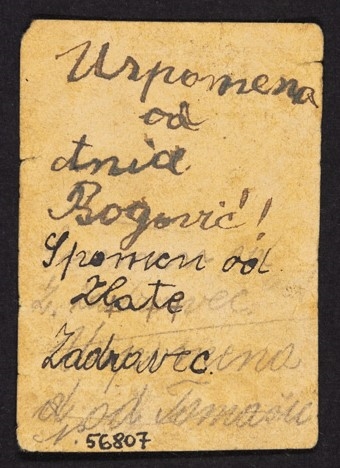 Uspomena
od
Bogović!
Spomen od
Zlate
Zadravec.
Uspomena
od
56807